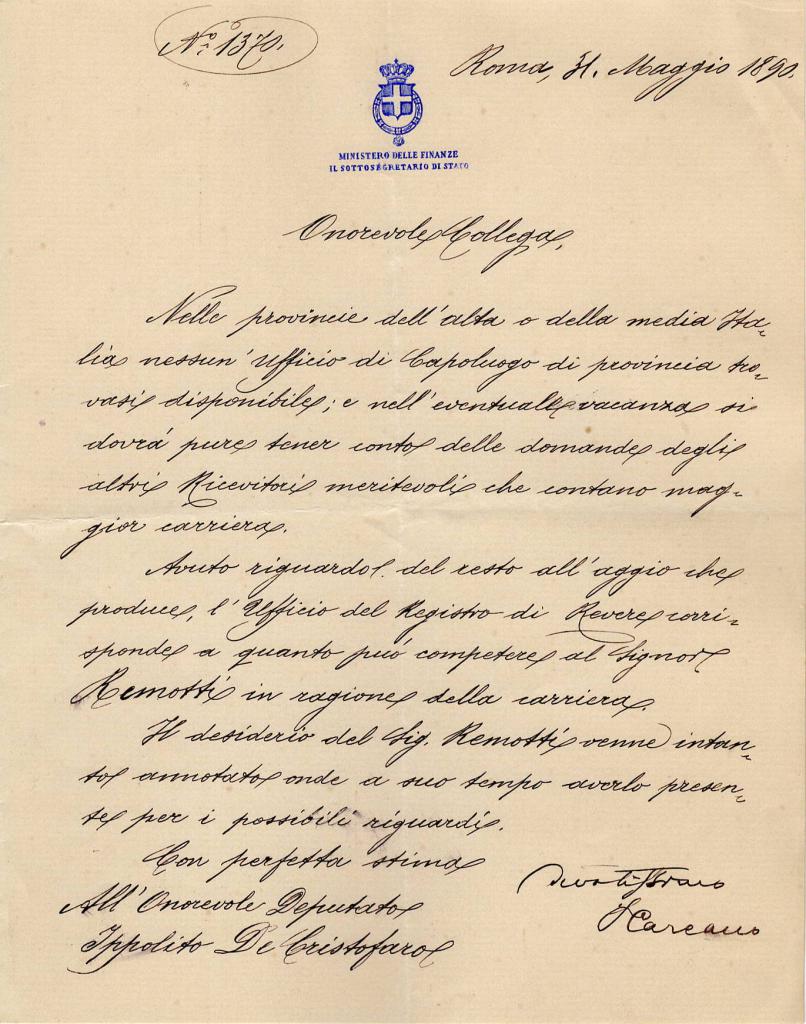 N.º 1370.
Roma, 31. Maggio 1890.
MINISTERO DELLE FINANZE
IL SOTTOSEGRETARIO DI STATO
Onorevole Collega,
Nelle provincie dell'alta o della media Ita-
lia nessun' Ufficio di Capoluogo di provincia tro-
vasi disponibile; e nell'eventuale vacanza si
dovrà pure tener conto delle domande degli
altri Ricevitori meritevoli che contano mag-
gior carriera.
Avuto riguardo del resto all'aggio che
produce, l'Ufficio del Registro di Revere corri-
sponde a quanto può competere al Signor
Remotti in ragione della carriera.
Il desiderio del Sig. Remotti venne intan-
to annotato onde a suo tempo averlo presen-
te per i possibili riguardi.
Con perfetta stima
devotissimo
All'Onorevole Deputato
Carcano
Ippolito De Cristofaro